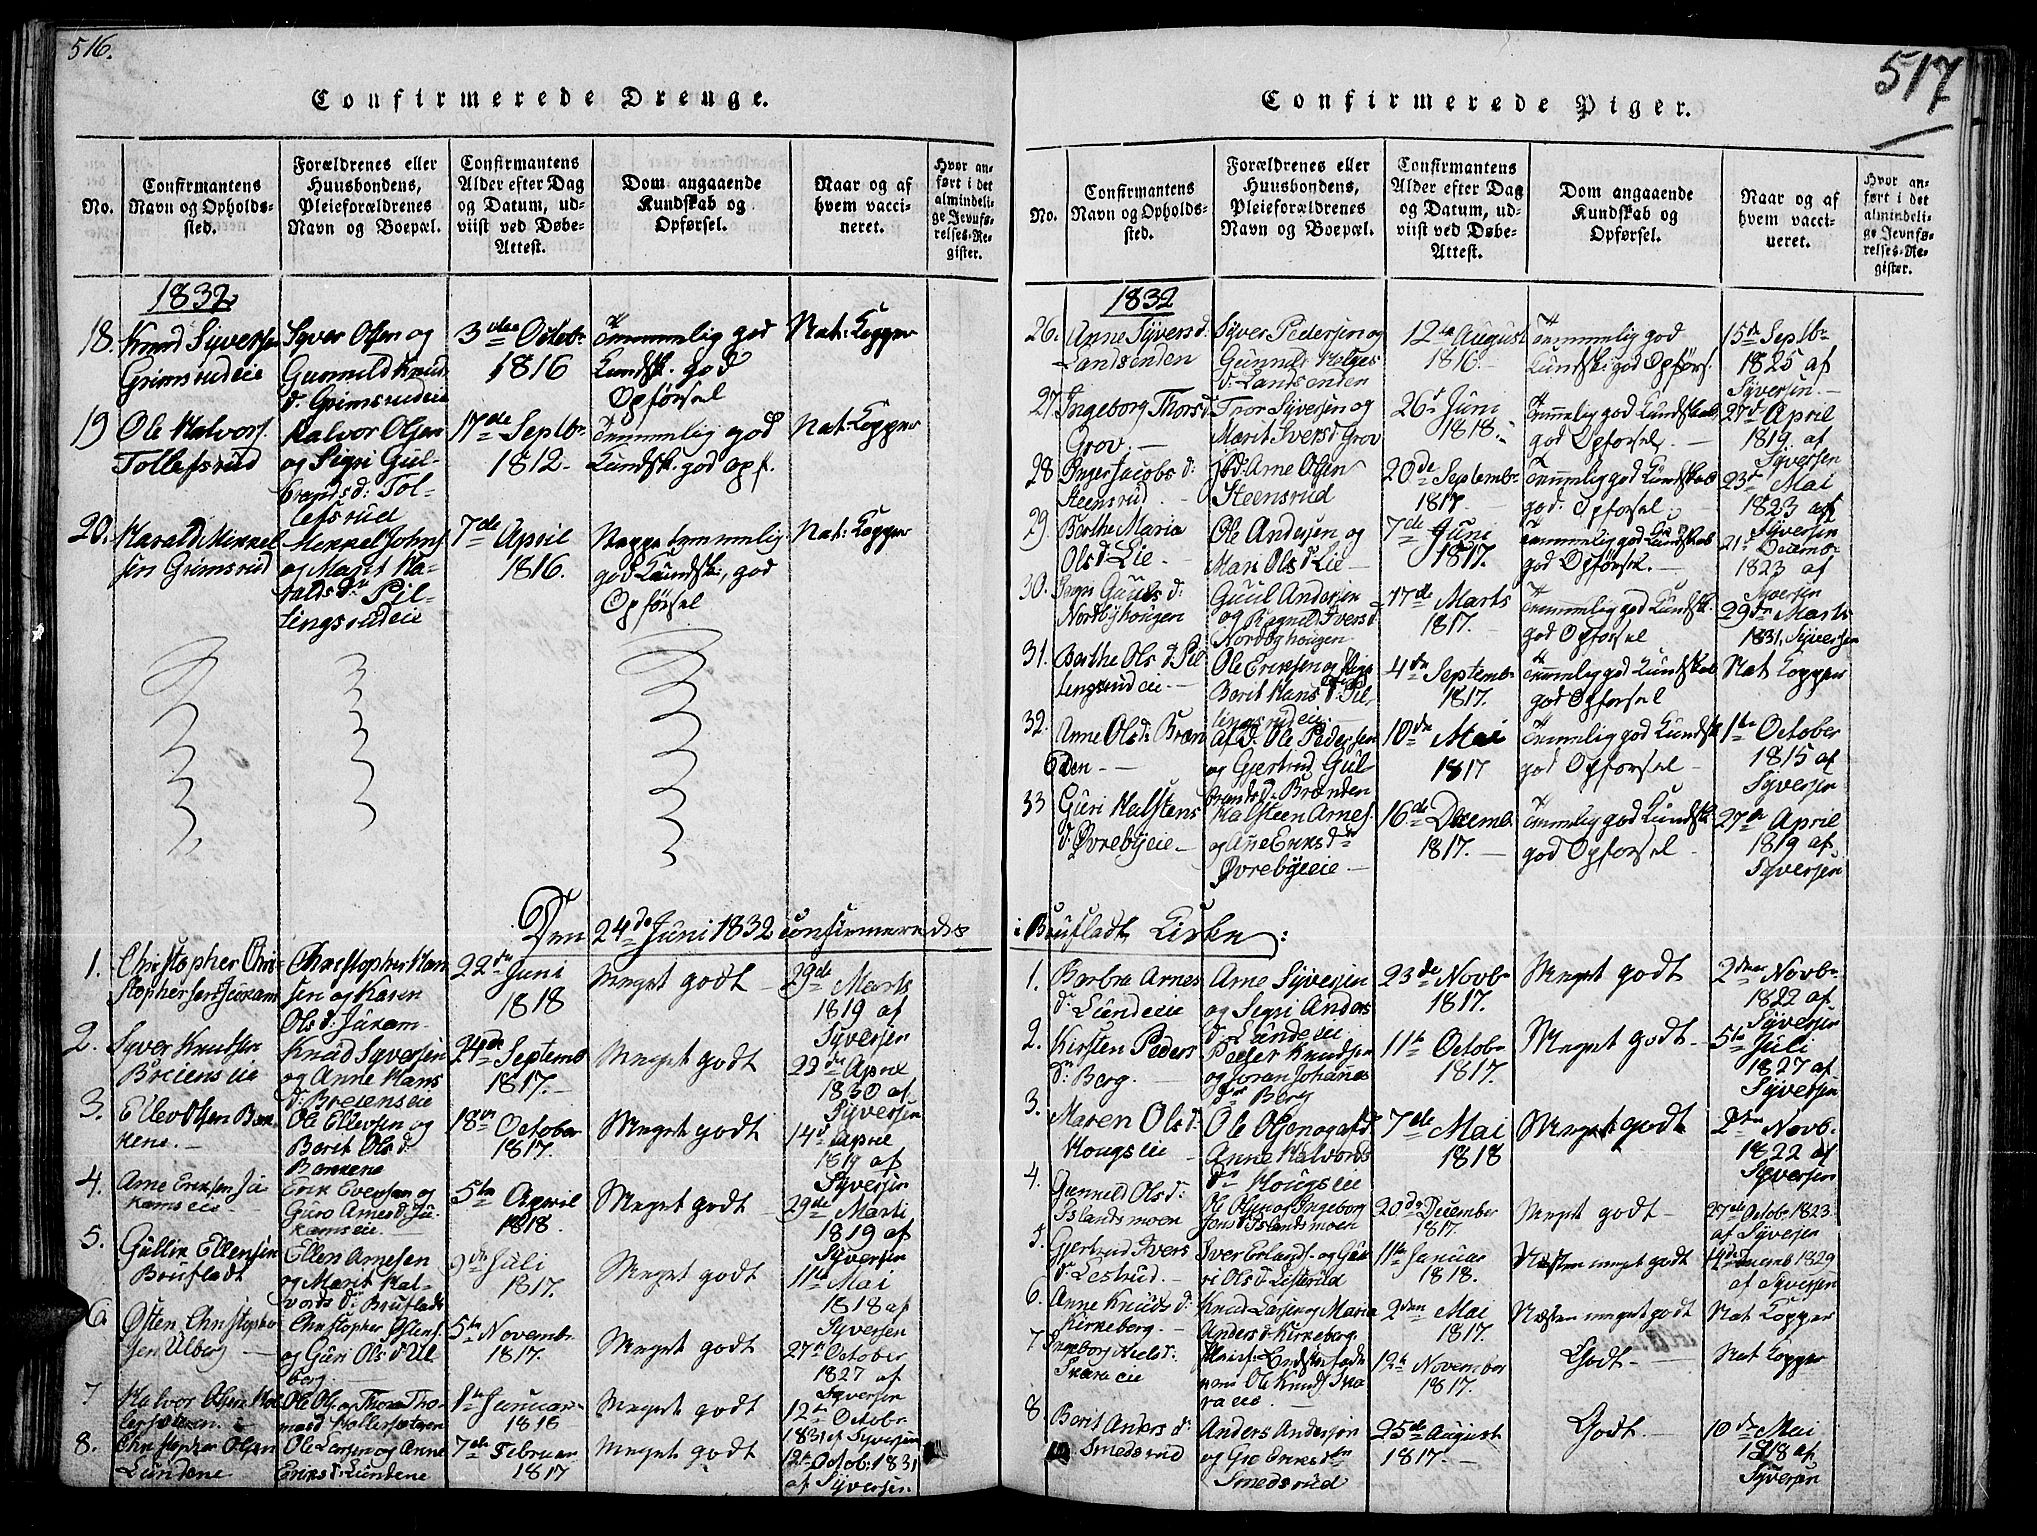 516.
Confirmerede Drenge.
No.
Confirmantens
Navn og Opholds-
sted.
Forældrenes eller
Huusbondens,
Pleieforældrenes
Navn og Boepæl.
Confirmantens
Alder efter Dag
og Datum, ud-
viist ved Døbe-
Attest.
Dom angaaende
Kundskab og
Opførsel.
Naar og af
hvem vacci-
neret.
Hvor an-
ført i det
almindeli-
ge Jevnfø-
relses-Re-
gister.
1832
18. Knud Syversen
Grimsrudeie
Syver Olsen og
Gunnild Knud
d. Grimsrudeie
3die Octobr
1816
Temmelig god
Kundsk. god
Opførsel
Nat: Kopper
19 Ole Halvors.
Tollefsrud
Halvor Olsen
og Sigri Gul-
brandsd: Tol-
lefsrud
17de Septbr
1812.
Temmelig god
Kundsk. god opf.
Nat: Kopper
20. Harald Mikkel
sen Grimsrud
Mikkel Johns
og Marit Ha-
ralds dr Pil-
lingsrudeie
7de April
1816.
Neppe temmelig
god Kundsk:, god
Opførsel
Nat: Kopper
Den 24de Juni 1832 confirmeredes
1. Christopher Chri-
stophersen Juxam
Christopher Han
sen og Karen
Ols d: Juxam
22de Juni
1818
Meget godt
29de Marts
1819 af
Syversen
2. Syver Knutsen
Breienseie
Knud Syversen
og Anne Hans
d: Breienseie
24de Septemb
1817.
Meget godt
22de April
1830 af
Syversen
3. Ellevolsen Bak-
kene.
Ole Ellevsen og
Berit Ols d:
Bakkene
18de October
1817.
Meget godt
14d April
1819 af
Syversen
4. Arne Eriksen Ju-
kamseie
Erik Eversen og
Guro Arnesd: Ju-
kamseie
5te April
1818.
Meget godt
29de Marti
1819 af
Syversen
5. Gullik Ellensen
Brufladt
Ellen Arnesen
og Marit Hal-
vords dr Brufladt
9de Juli
1817.
Meget godt
11te Mai
1818 af
Syversen
6. Østen Christopher
sen Ulberg
Christopher Østens.
og Guri Ols d: Ul-
berg
5te Novembr
1817.
Meget godt
27de October
1827 af
Syversen
7 Halvor Olsen
Ole Ols. og Thora Tho-
1te Januar
1818
Meget godt
12te Octobr
1831 af Syversen
8. Christopher Olsen
Lundene
Ole Larsen og Anne
Eriks d: Lundene
7de Februar
1817
Meget godt
12te Octob: 1831
af Syversen
517
Confirmerede Piger.
No.
Confirmantens
Navn og Opholds-
sted.
Forældrenes eller
Huusbondens,
Pleieforældrenes
Navn og Boepæl.
Confirmantens
Alder efter Dag
og Datum, ud-
viist ved Døbe-
Attest.
Dom angaaende
Kundskab og
Opførsel.
Naar og af
hvem vacci-
neret.
Hvor an-
ført i det
almindeli-
ge Jevnfø-
relses-Re-
gister.
1832
26. Anne Syvers d:
Landsenden
Syver Pedersen og
Gunnild Helges
d: Landsenden
12te August
1816.
Temmelig god
Kundsk: god Opførs.
15de Septbr
1825 af
Syversen.
27. Ingeborg Thorsd:
Grov.
Thor Syversen og
Marit Iversd Grov
26d Juni
1818.
Temmelig god Kundskab
god Opførsel.
27d April
1819. af
Syversen
28 Inger Jacobs d:
Steensrud
Arne Olsen
Steensrud
20de Septembr
1817.
Temmelig god Kundskab
god: Opførsel.
23de Mai
1823 af
Syversen
29. Berthe Maria
Olsd: Lie.
Ole Andersen og
Mari Ols d Lie
7de Juni
1817.
Temmelig god Kundskab
god Opførsel.
21de Decemb
1823 af
Syversen
30. Guuls d:
Nordbyhougen
Guul Andersen
og Ragnild Ivers d
Nordbyhougen
17de Marts
1817.
Temmelig god Kundsk.
god Opførsel
29de Marts
1831. Syversen
31. Berthe Ols d: Pil
lingsrudeie
Ole Eriksen og
Berit Hans d: Pil-
lingsrudeie
4de Septembr
1817.
Temmelig god Kundskab
god Opførsel
Nat Kopper
32. Anne Olsd: Bræn
den
af d: Ole Pedersen
og Gjertrud Gul-
brands d: Brænden
10de Mai
1817
Temmelig god Kundsk
god Opførsel
1te October
1815 af
Syversen
33 Guri Halstens
d: Øvrebyeie
Halsteen Arnes.
og Ane Eriks dr
Øvrebyeie
16de Decemb
1817.
Temmelig god Kundsk.
god Opførsel
27de April
1819 af
Syversen
i Brufladt Kirke:
1. Barbra Arnes
d: Lundeeie
Arne Syversen
og Segri Anders
d: Lundeeie
23de Novbr
1817.
Meget godt
2den Novbr
1822 af
Syversen
2. Kirsten Peders
dr Berg.
Peder Knudsen
og Joran Johannes
dr Berg
11te Octobr
1817.
Meget godt
5te Juli
1827 af
Syversen
3. Maren Ols d:
Hougseie
Ole Olsen og afd:
Anne Halvords
dr Hougseie
7de Mai
1818
Meget godt
2den Novb.
1822 af
Syversen
4. Gunnild Ols d:
Islandsmoen
Ole Olsen og Ingeborg
Jons d Islandsmoen
20de December
1817.
Meget godt
27de Octobr. 1823.
af Syversen
5. Gjertrud Ivers
d: Lestrud.
Iver Erlands. og Gu-
ri Ols d: Listerud
11te Januar
1818.
Næsten meget godt
14de Decemb 1829
af Syversen
6. Anne Knuds d:
Kirkeberg
Knud Larsen og Maria
Anders d: Kirkeberg
2den Mai
1817.
Næsten meget godt
Nat Kopper
7 Ingeborg Niels d:
Skaraeie
Ole Knuds. Ska-
raeie.
12te November
1817.
Godt
Nat Kopper
8. Berit Anders d:
Smedsrud
Anders Andersen
og Gro Eriks dr
Smedsrud
25de August
1817.
Godt.
10de Mai
1818 af
Syversen